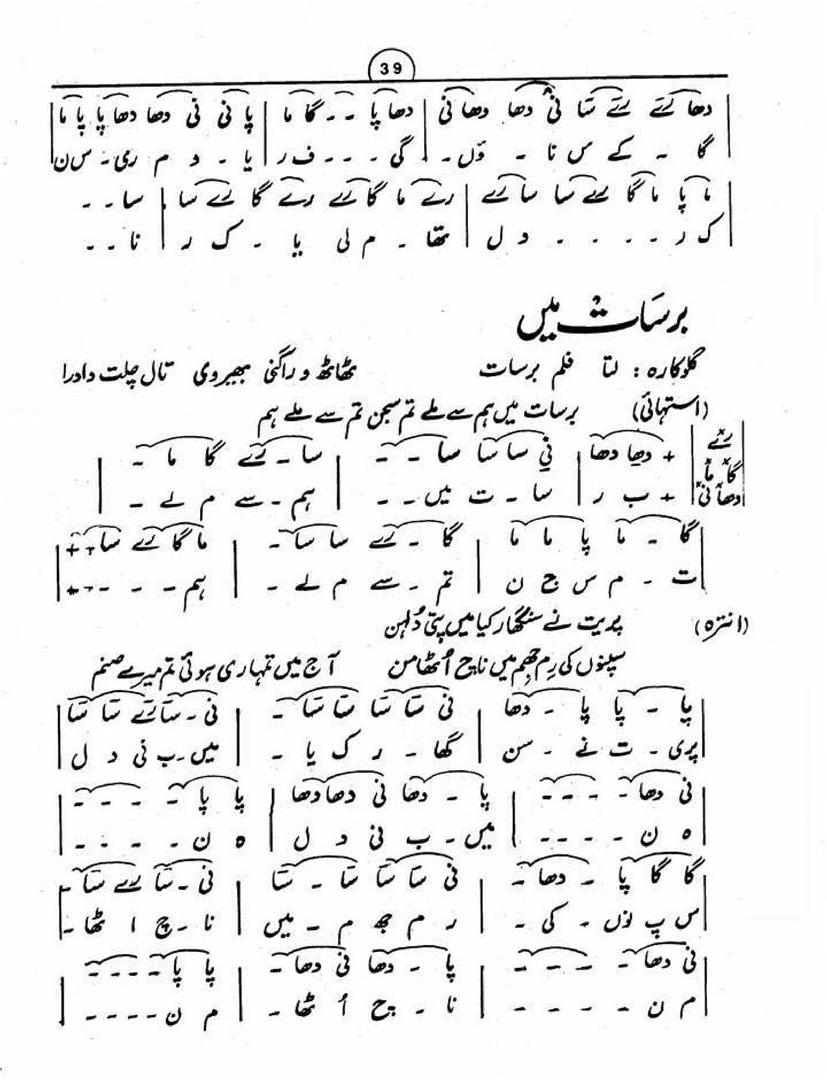 39
دھا رے رے سا نی دھا دھا نی | دھا پا - - گا ما | پا نی نی دھا دھا پا پا ما |
گا - کے س نا - ؤں - | گی - - - ف ر | یا - د م ری - س ن |
ما پا ما گا رے سا سا رے | رے ما گا رے رے گا رے سا | سا - -
ک ر - - - - د ل | تھا - م لی یا - ک ر | نا - -
برسات میں
گلوکارہ : لتا فلم برسات ٹھاٹھ و راگنی بھیروی تال چلت دادرا
(استھائی) برسات میں ہم سے ملے تم سجن تم سے ملے ہم
رے گا ما دھا نی
+ دھا دھا | نی سا سا سا - - | سا - رے گا ما - |
+ ب ر | سا - ت میں - - | ہم - سے م لے - |
گا - ما پا ما ما | گا - رے سا سا - | ما گا رے سا - + |
ت - م س ج ن | تم - سے م لے - | ہم - - - - + |
(انترہ) پریت نے سنگھار کیا میں بنی دُلہن
سپنوں کی رِم جھِم میں ناچ اُٹھا من آج میں تمہاری ہوئی تم میرے صنم
پا - پا پا - دھا | نی سا سا سا سا - | نی - سا رے سا سا |
پری - ت نے - سن | گھا - ر ک یا - | میں - ب نی د ل |
نی دھا - - - - | پا - دھا نی دھا دھا | پا پا - - - - |
ہ ن - - - - | میں - ب نی د ل | ہ ن - - - - |
گا گا پا - دھا - | نی سا سا سا - سا | نی - سا رے سا - |
س پ نوں - کی - | ر م جھ م - میں | نا - چ ا ٹھا - |
نی دھا - - - - | پا - دھا نی دھا - | پا پا - - - - |
م ن - - - - | نا - چ اُ ٹھا - | م ن - - - - |